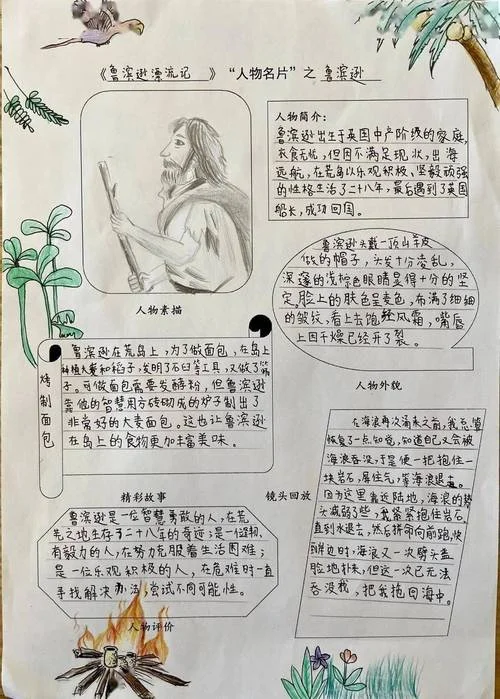 《鲁滨逊漂流记》“人物名片”之 鲁滨逊
人物简介:
鲁滨逊出生于英国中产阶级的家庭,
衣食无忧,但因不满足现状,出海
远航,在荒岛以乐观积极、坚毅顽强
的性格生活了二十八年,最后遇到了英国
船长,成功回国。
人物素描
鲁滨逊头戴一顶山羊皮
做的帽子,头发十分凌乱,
深邃的浅棕色眼睛显得十分的坚
定。脸上的肤色呈麦色,布满了细细
的皱纹,看上去饱经风霜,嘴唇
上因干燥已经开了裂。
人物外貌
烤制面包
鲁滨逊在荒岛上,为了做面包,在岛上
种植大麦和稻子,发明了石臼等工具,又做了筛
子。可做面包需要发酵粉,但鲁滨逊
靠他的智慧用方砖砌成的炉子制出了
非常好的大麦面包。这也让鲁滨逊
在岛上的食物更加丰富美味。
精彩故事
镜头回放
在海浪再次涌来之前,我总算
恢复了一点知觉,知道自己又会被
海浪吞没,于是便一把抱住一
块岩石,屏住气,等海浪退去。
因为这里靠近陆地,海浪的势
头减弱了些,我紧紧抱住岩石,
直到水退去,然后拼命向前跑,快
到岸边时,海浪又一次劈头盖
脸地扑来,但这一次已无法
吞没我,把我拖回海中。
鲁滨逊是一位智慧勇敢的人,在荒
之地生存了二十八年的奇迹;是一位
有毅力的人,在努力克服着生活困难;
是一位乐观积极的人,在危难时一直
寻找解决办法,尝试不同可能性。
人物评价